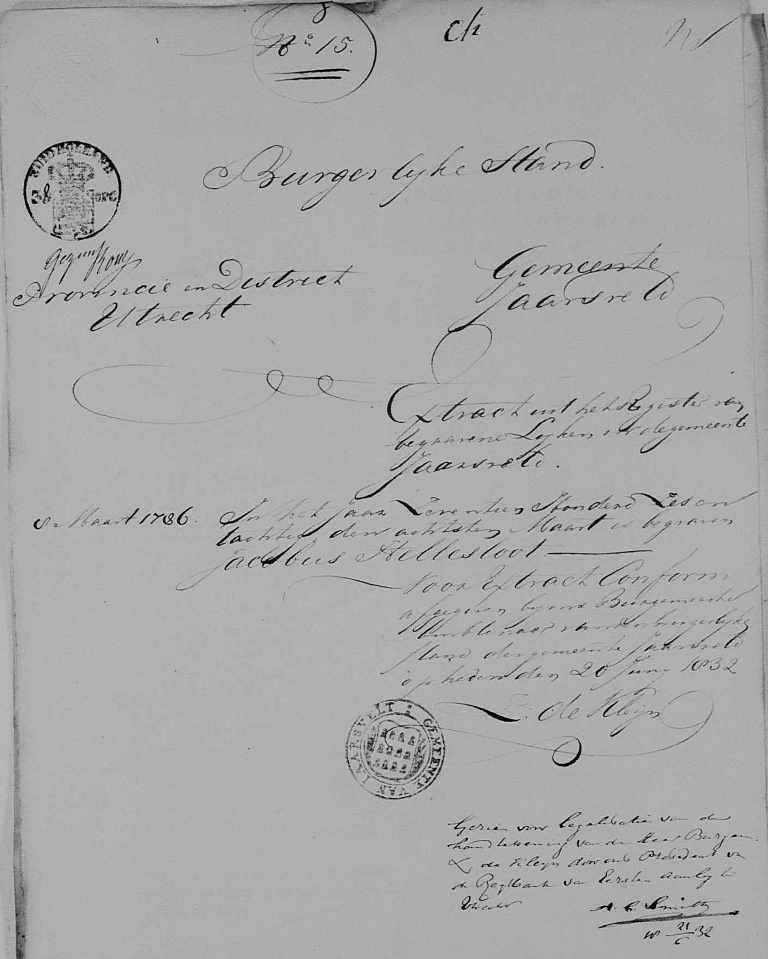 8
Nº 15.
Ch
Burgerlyke Stand.
Provincie en District
Utrecht
Gemeente
Jaarsveld
Extract uit het Register van
begravene Lyken in de gemeente
Jaarsveld.
8n Maart 1786.
In het Jaar Zeventien Honderd Zes en
tachtig den achtsten Maart is begraven
Jacobus Hellesloot
Voor Extract Conform
afgegeven by ons Burgemeester
Ambtenaar van den burgerlyke
Stand der gemeente Jaarsveld
op heden den 20 Juny 1832
L. de Kleyn
GEMEENTE VAN JAARSVELT
Gezien voor legalisatie van de
handtekening van de Heer Burgem.
L de Kleyn door ons President van
de Regtbank van Eersten Aanleg te
Utrecht
21/6 32